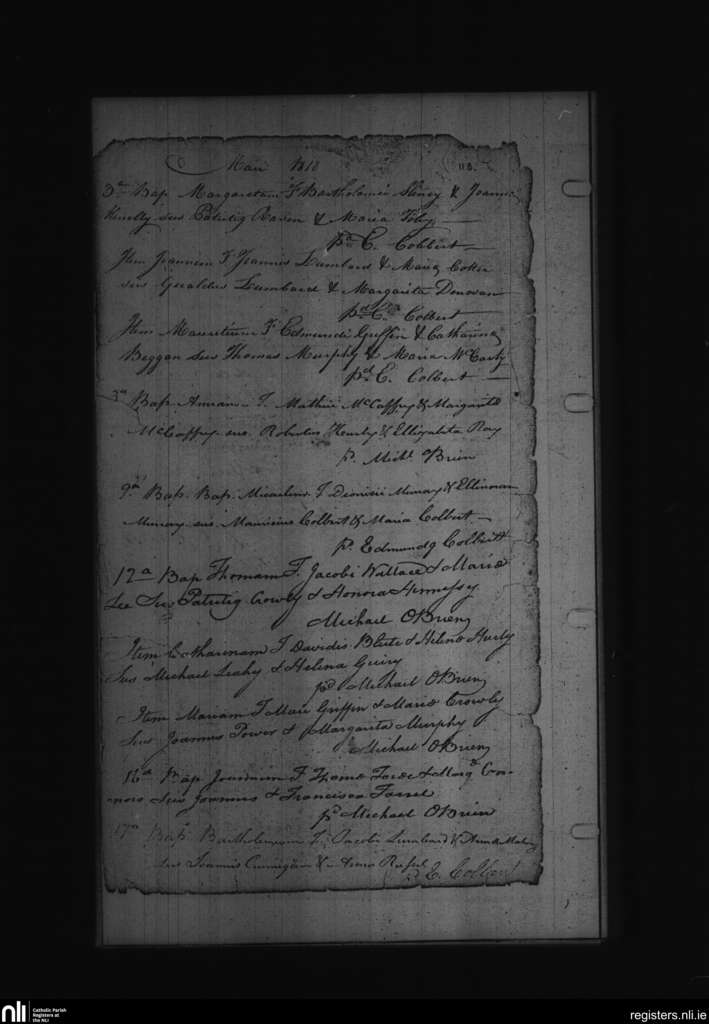 Maii 1818 118.
3a Bap Margaretam F Bartholomei Sliney & Joanna
Kenelly sus Patritiq Raven & Maria Foley
pd E. Colbert
Item Joannem F Joannis Lumbard & Maria Cotter
sus Geraldus Lumbard & Margarita Donovan
pd E. Colbert
Item Mauritium F Edmundi Griffin & Catharina
Beggan sus Thomas Murphy & Maria McCarty
pd E. Colbert
3a Bap. Annam F. Mathiæ McCaffry & Margarita
McCaffry sus. Robertus Heurly & Ellizabeta Ray
p. Michl OBrien
9a Bap. Bap. Micaelem F Dionisii Murray & Ellinoram
Murray sus. Mauricius Colbert & Maria Colbert
pr Edmundq Colbert
12a Bap Thomam F. Jacobi Wallace & Mariæ
Lee Sus Patritiq Crowly & Honora Hennessy
Michael OBrien
Item Catharinam F Davidis & Helena Hurly
Sus Michael Leahy & Helena Guiry
pd Michael OBrien
Item Mariam F Griffin & Mariæ Crowly
Sus Joannes Power & Margarita Murphy
Michael OBrien
16a Bap Joannem F Thomæ & Marga Con-
nors Sus Joannes & Francisca Farrel
pr Michael OBrien
17a Bap. Bartholemeum F. Jacobi Lumbard & Anna
sus Joannis & Anna Russel
pd E. Colbert
nli Catholic Parish
Registers at
the NLI
registers.nli.ie